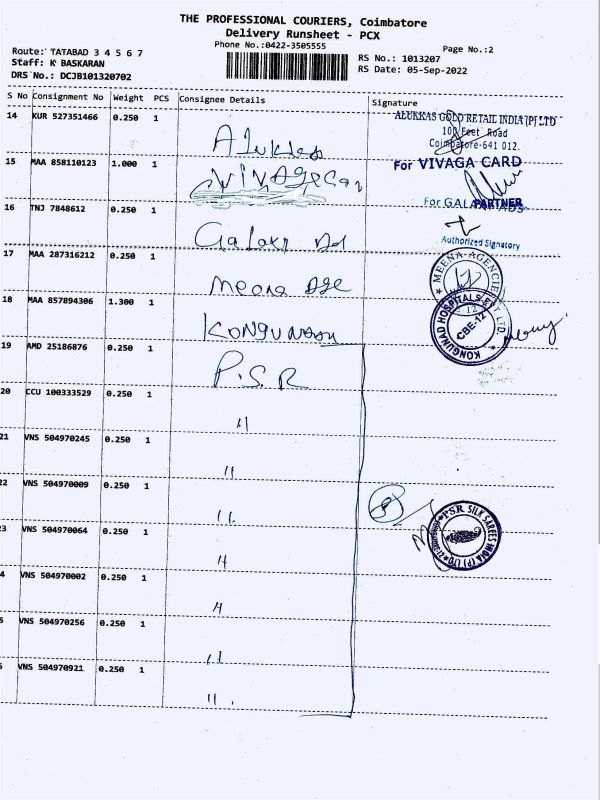 THE PROFESSIONAL COURIERS, Coimbatore
Delivery Runsheet - PCX
Phone No.:0422-3505555
Page No.:2
Route: TATABAD 3 4 5 6 7
Staff: K BASKARAN
DRS No.: DCJB101320702
RS No.: 1013207
RS Date: 05-Sep-2022
S No Consignment No Weight PCS Consignee Details Signature
14 KUR 527351466 0.250 1 Alukkas
ALUKKAS GOLD RETAIL INDIA (P) LTD
100 Feet Road
Coimbatore-641 012.
15 MAA 858110123 1.000 1
For VIVAGA CARD
PARTNER
16 TNJ 7848612 0.250 1 Galaxi Ad
For GALAXI ADS
Authorized Signatory
17 MAA 287316212 0.250 1 Meena Age
MEENA-AGENCIES
18 MAA 857894306 1.300 1
KONGUNAD HOSPITALS PVT LTD.
CBE-12
19 AMD 25186876 0.250 1 P.S.R
20 CCU 100333529 0.250 1 "
21 VNS 504970245 0.250 1 "
22 VNS 504970009 0.250 1 "
23 VNS 504970064 0.250 1 "
PSR SILK SAREES INDIA (P) LTD
4 VNS 504970002 0.250 1 "
5 VNS 504970256 0.250 1 "
6 VNS 504970921 0.250 1 "